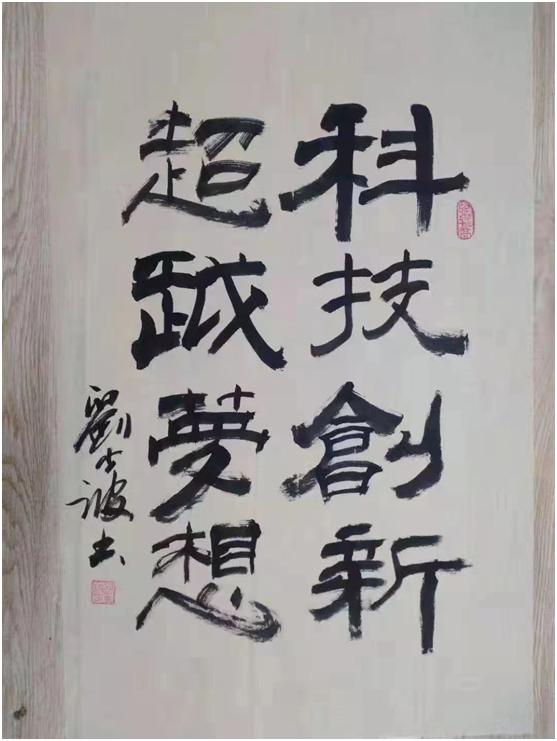 科技創新
超越夢想
劉士波书